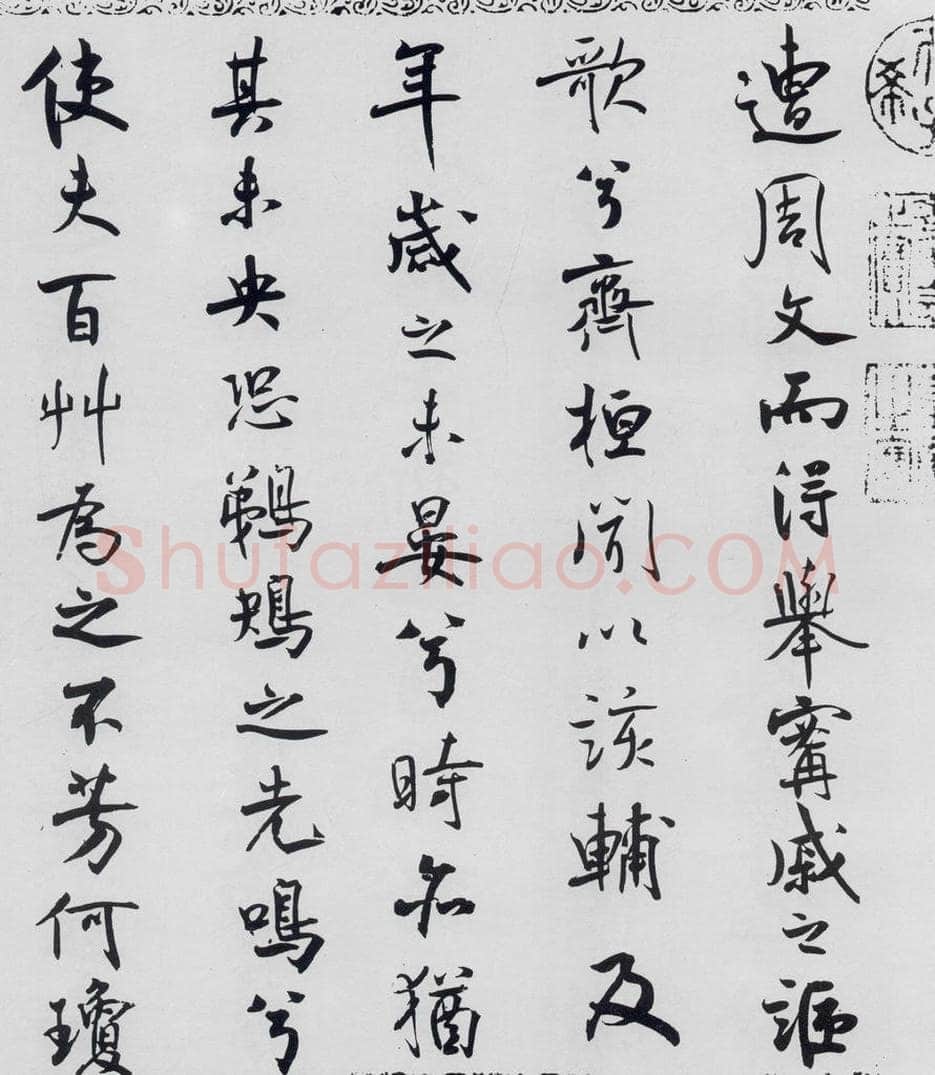 遭周文而得舉甯戚之謳
歌兮齊桓聞以該輔及
年歲之未晏兮時亦猶
其未央恐鵜鴂之先鳴兮
使夫百艸為之不芳何瓊
Shufaziliao.COM